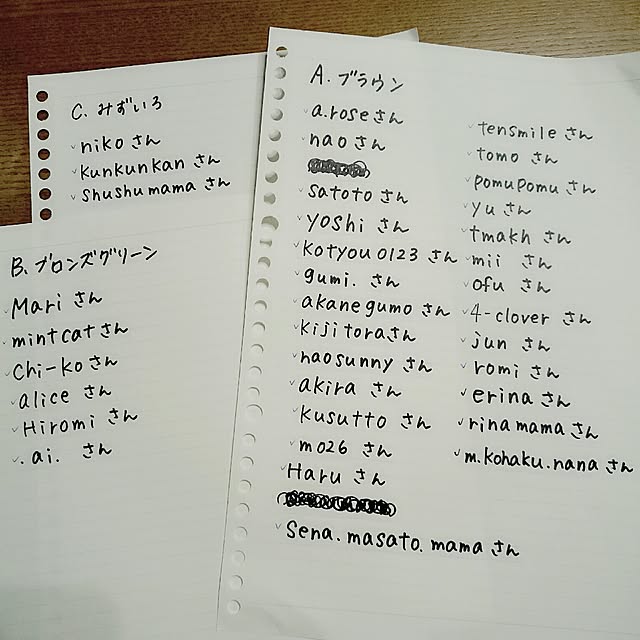 C. みずいろ
niko さん
kunkunkan さん
shushumama さん
B. ブロンズグリーン
Mari さん
mintcat さん
Chi-ko さん
alice さん
Hiromi さん
.ai. さん
A. ブラウン
a.rose さん
nao さん
satoto さん
yoshi さん
kotyou0123 さん
gumi. さん
akanegumo さん
kijitora さん
naosunny さん
akira さん
kusutto さん
mo26 さん
Haru さん
Sena.masato.mama さん
tensmile さん
tomo さん
pomupomu さん
yu さん
tmakh さん
mii さん
ofu さん
4-clover さん
jun さん
romi さん
erina さん
rinamama さん
m.kohaku.nana さん